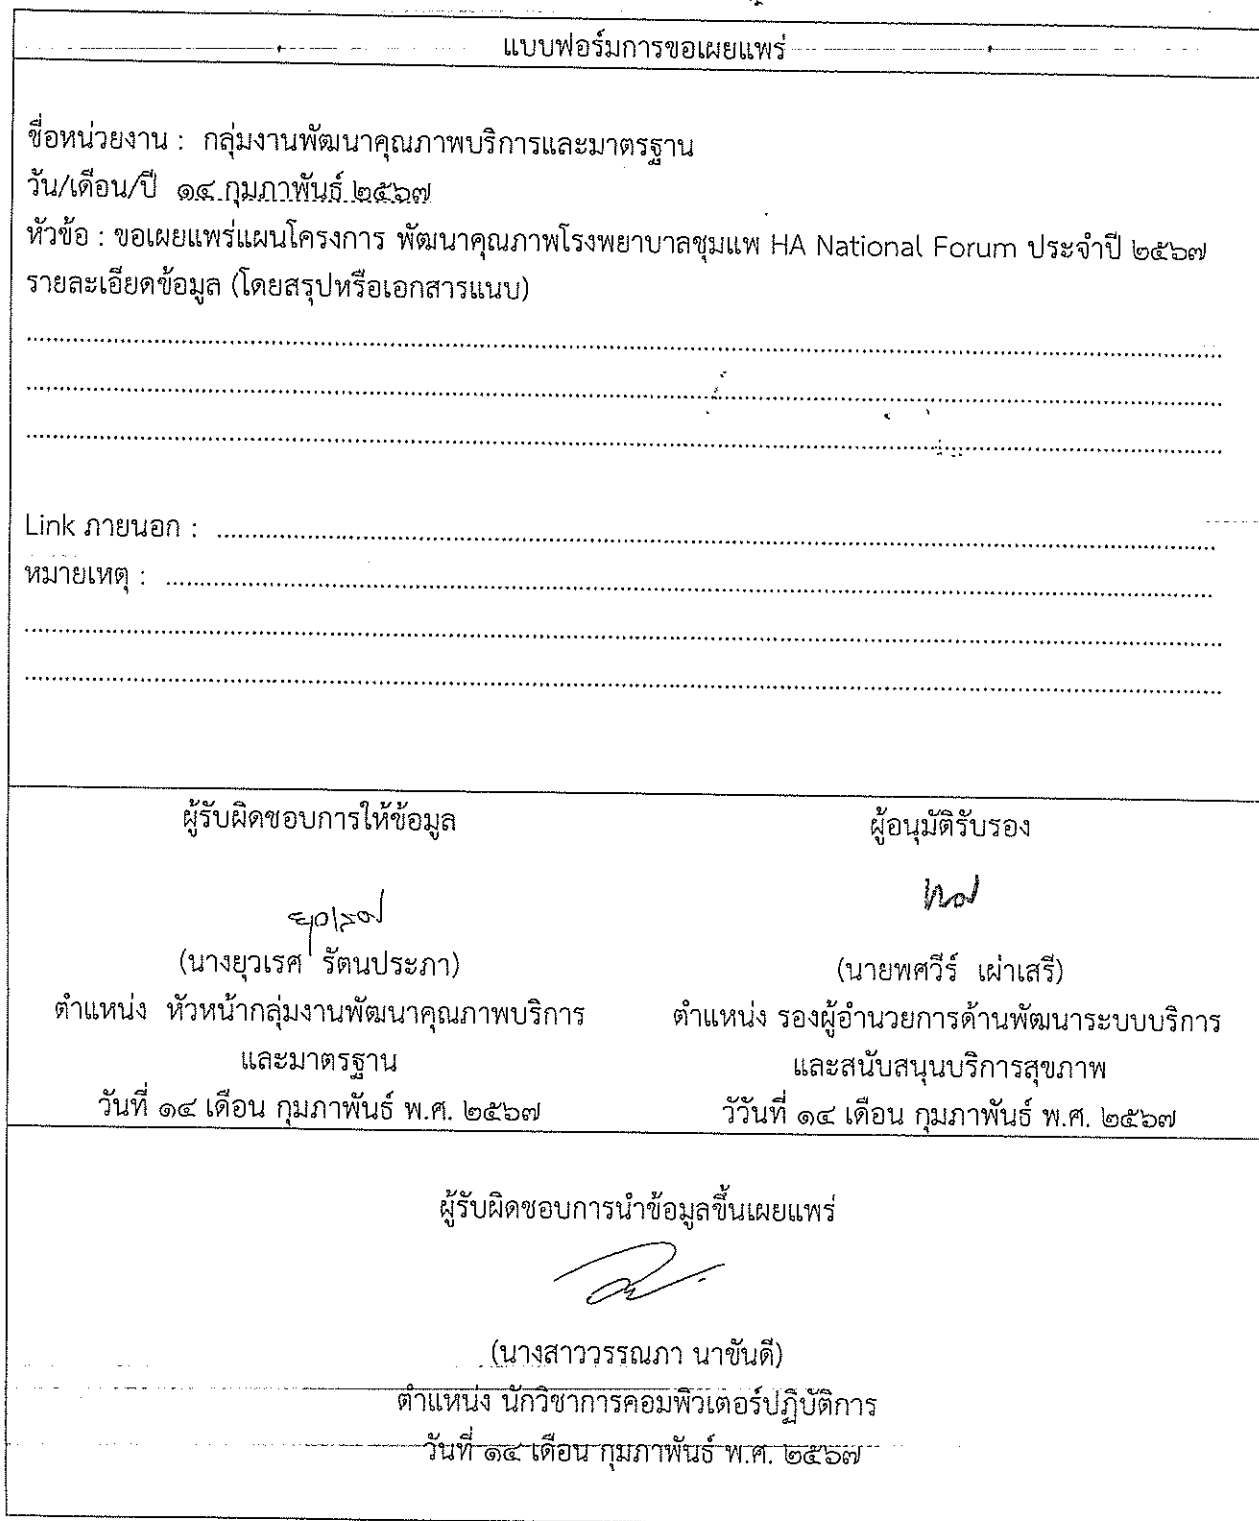 แบบฟอร์มการขอเผยแพร่
ชื่อหน่วยงาน : กลุ่มงานพัฒนาคุณภาพบริการและมาตรฐาน
วัน/เดือน/ปี ๑๔ กุมภาพันธ์ ๒๕๖๗
หัวข้อ : ขอเผยแพร่แผนโครงการ พัฒนาคุณภาพโรงพยาบาลชุมแพ HA National Forum ประจำปี ๒๕๖๗
รายละเอียดข้อมูล (โดยสรุปหรือเอกสารแนบ)
Link ภายนอก :
หมายเหตุ :
ผู้รับผิดชอบการให้ข้อมูล
(นางยุวเรศ รัตนประภา)
ตำแหน่ง หัวหน้ากลุ่มงานพัฒนาคุณภาพบริการ
และมาตรฐาน
วันที่ ๑๔ เดือน กุมภาพันธ์ พ.ศ. ๒๕๖๗
ผู้อนุมัติรับรอง
(นายพศวีร์ เผ่าเสรี)
ตำแหน่ง รองผู้อำนวยการด้านพัฒนาระบบบริการ
และสนับสนุนบริการสุขภาพ
วัวันที่ ๑๔ เดือน กุมภาพันธ์ พ.ศ. ๒๕๖๗
ผู้รับผิดชอบการนำข้อมูลขึ้นเผยแพร่
(นางสาววรรณภา นาขันดี)
ตำแหน่ง นักวิชาการคอมพิวเตอร์ปฏิบัติการ
วันที่ ๑๔ เดือน กุมภาพันธ์ พ.ศ. ๒๕๖๗